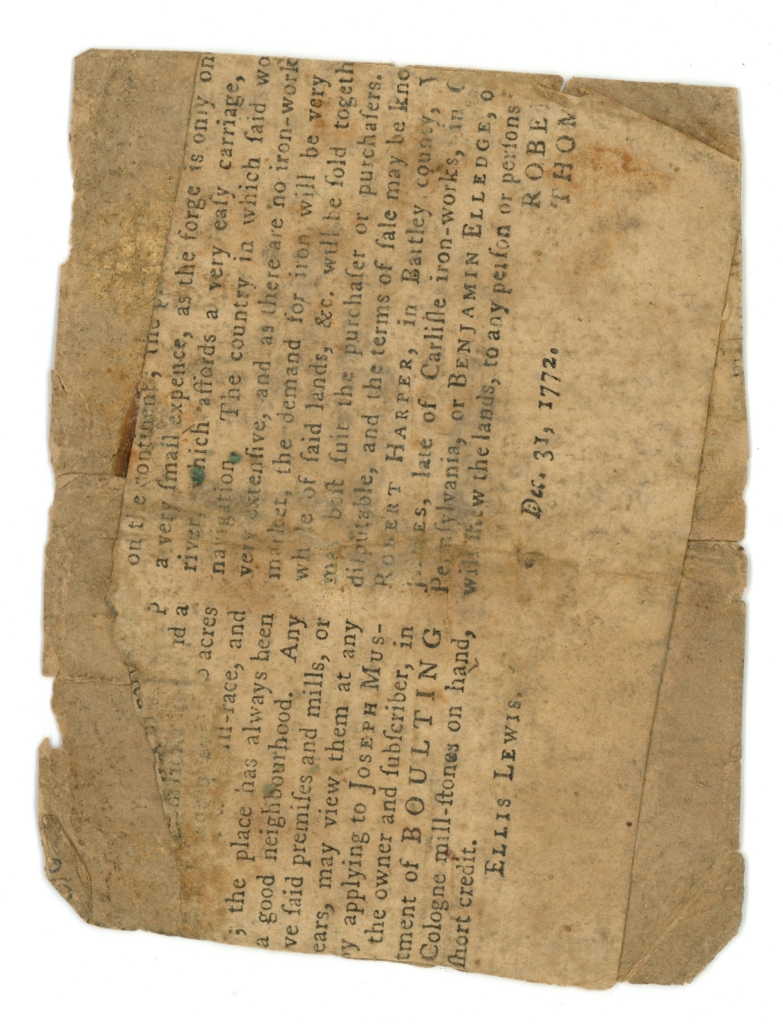 P
nd a
acres
ill-race, and
; the place has always been
a good neighbourhood. Any
ve ſaid premiſes and mills, or
ears, may view them at any
y applying to JOSEPH MUS-
the owner and ſubſcriber, in
tment of BOULTING
Cologne mill-ſtones on hand,
ſhort credit.
ELLIS LEWIS.
on the continent; the p
a very ſmall expence, as the forge is only on
river, which affords a very eaſy carriage,
navigation. The country in which ſaid wo
very extenſive, and as there are no iron-work
market, the demand for iron will be very
while of ſaid lands, &c. will be ſold togeth
may beſt ſuit the purchaſer or purchaſers.
diſputable, and the terms of ſale may be kno
ROBERT HARPER, in Bartley county, V
late of Carliſle iron-works, in C
Pennſylvania, or BENJAMIN ELLEDGE, o
will ſhew the lands, to any perſon or perſons
ROBE
THOM
Dec. 31, 1772.